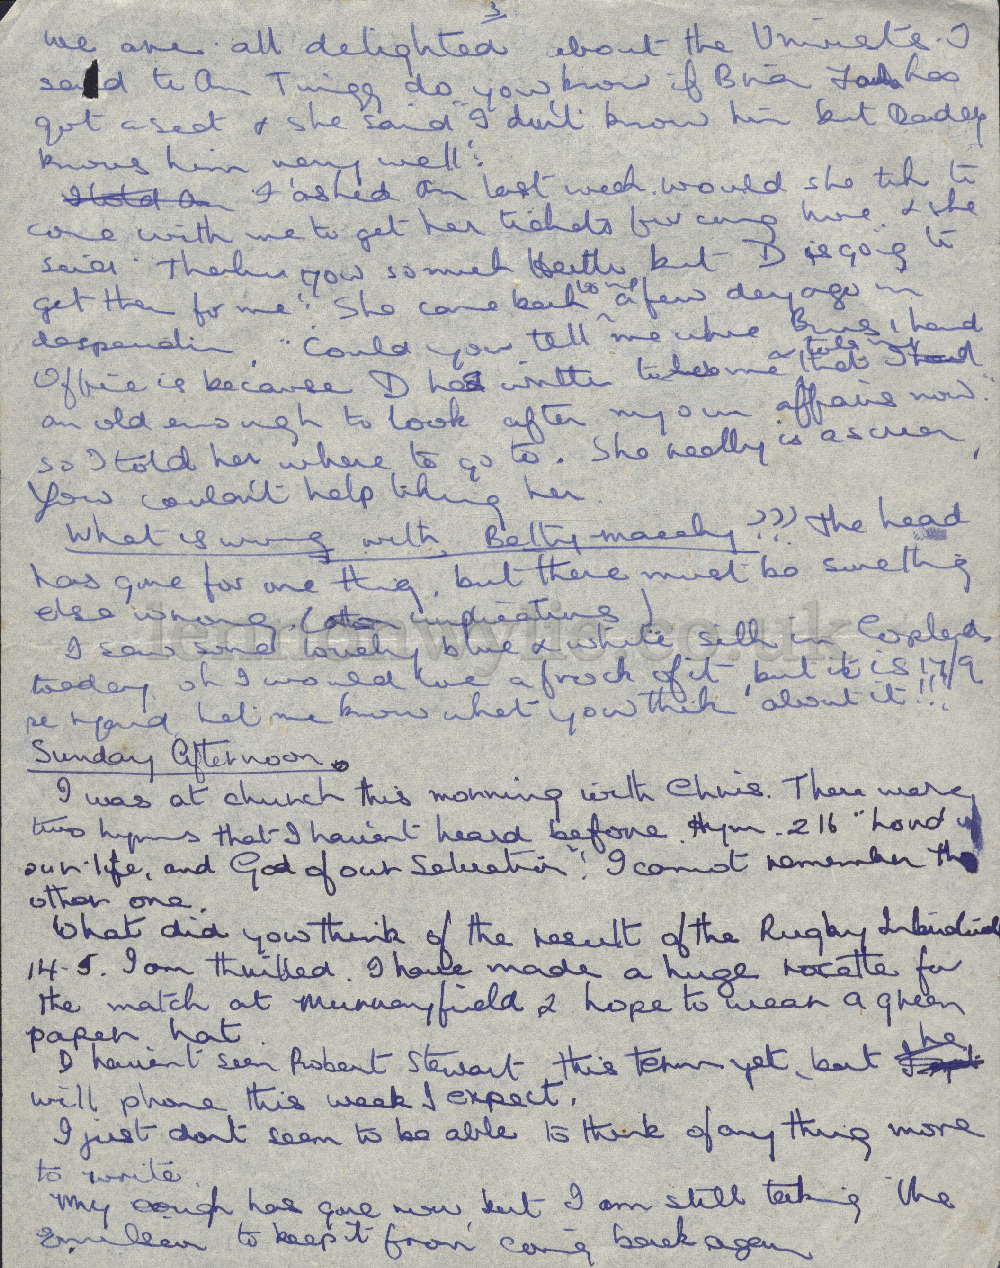 3
we are all delighted about the Unionists. I
said to An Twigg do you know if Brian has
got a seat & she said "I don't know him but Daddy
knows him very well".
I told An I asked An last week would she like to
come with me to get her tickets for coming home & she
said "Thank you so much Heather, but D is going to
get them for me". She came back to me a few days ago in
desperation, "Could you tell me where Burns & head
Office is because D has written to me that I
am old enough to look after my own affairs now."
so I told her where to go to. She really is a scream,
You couldn't help liking her.
What is wrong with Betty ??? The head
has gone for one thing, but there must be something
else wrong (implications)
I saw some lovely blue & white silk in Copelands
today, oh I would love a frock of it, but it is 17/9
per yard, let me know what you think about it!!!
Sunday Afternoon.
I was at church this morning with Chris. There were
two hymns that I haven't heard before. Hymn. 216 "Lord of
our life, and God of our Salvation". I cannot remember the
other one.
What did you think of the result of the Rugby International
14-5. I am thrilled. I have made a huge rosette for
the match at Murrayfield & hope to wear a green
paper hat.
I haven't seen Robert Stewart this term yet, but he
will phone this week I expect.
I just don't seem to be able to think of any thing more
to write.
My cough has gone now, but I am still taking the
Emulsion to keep it from coming back again
lennonwylie.co.uk